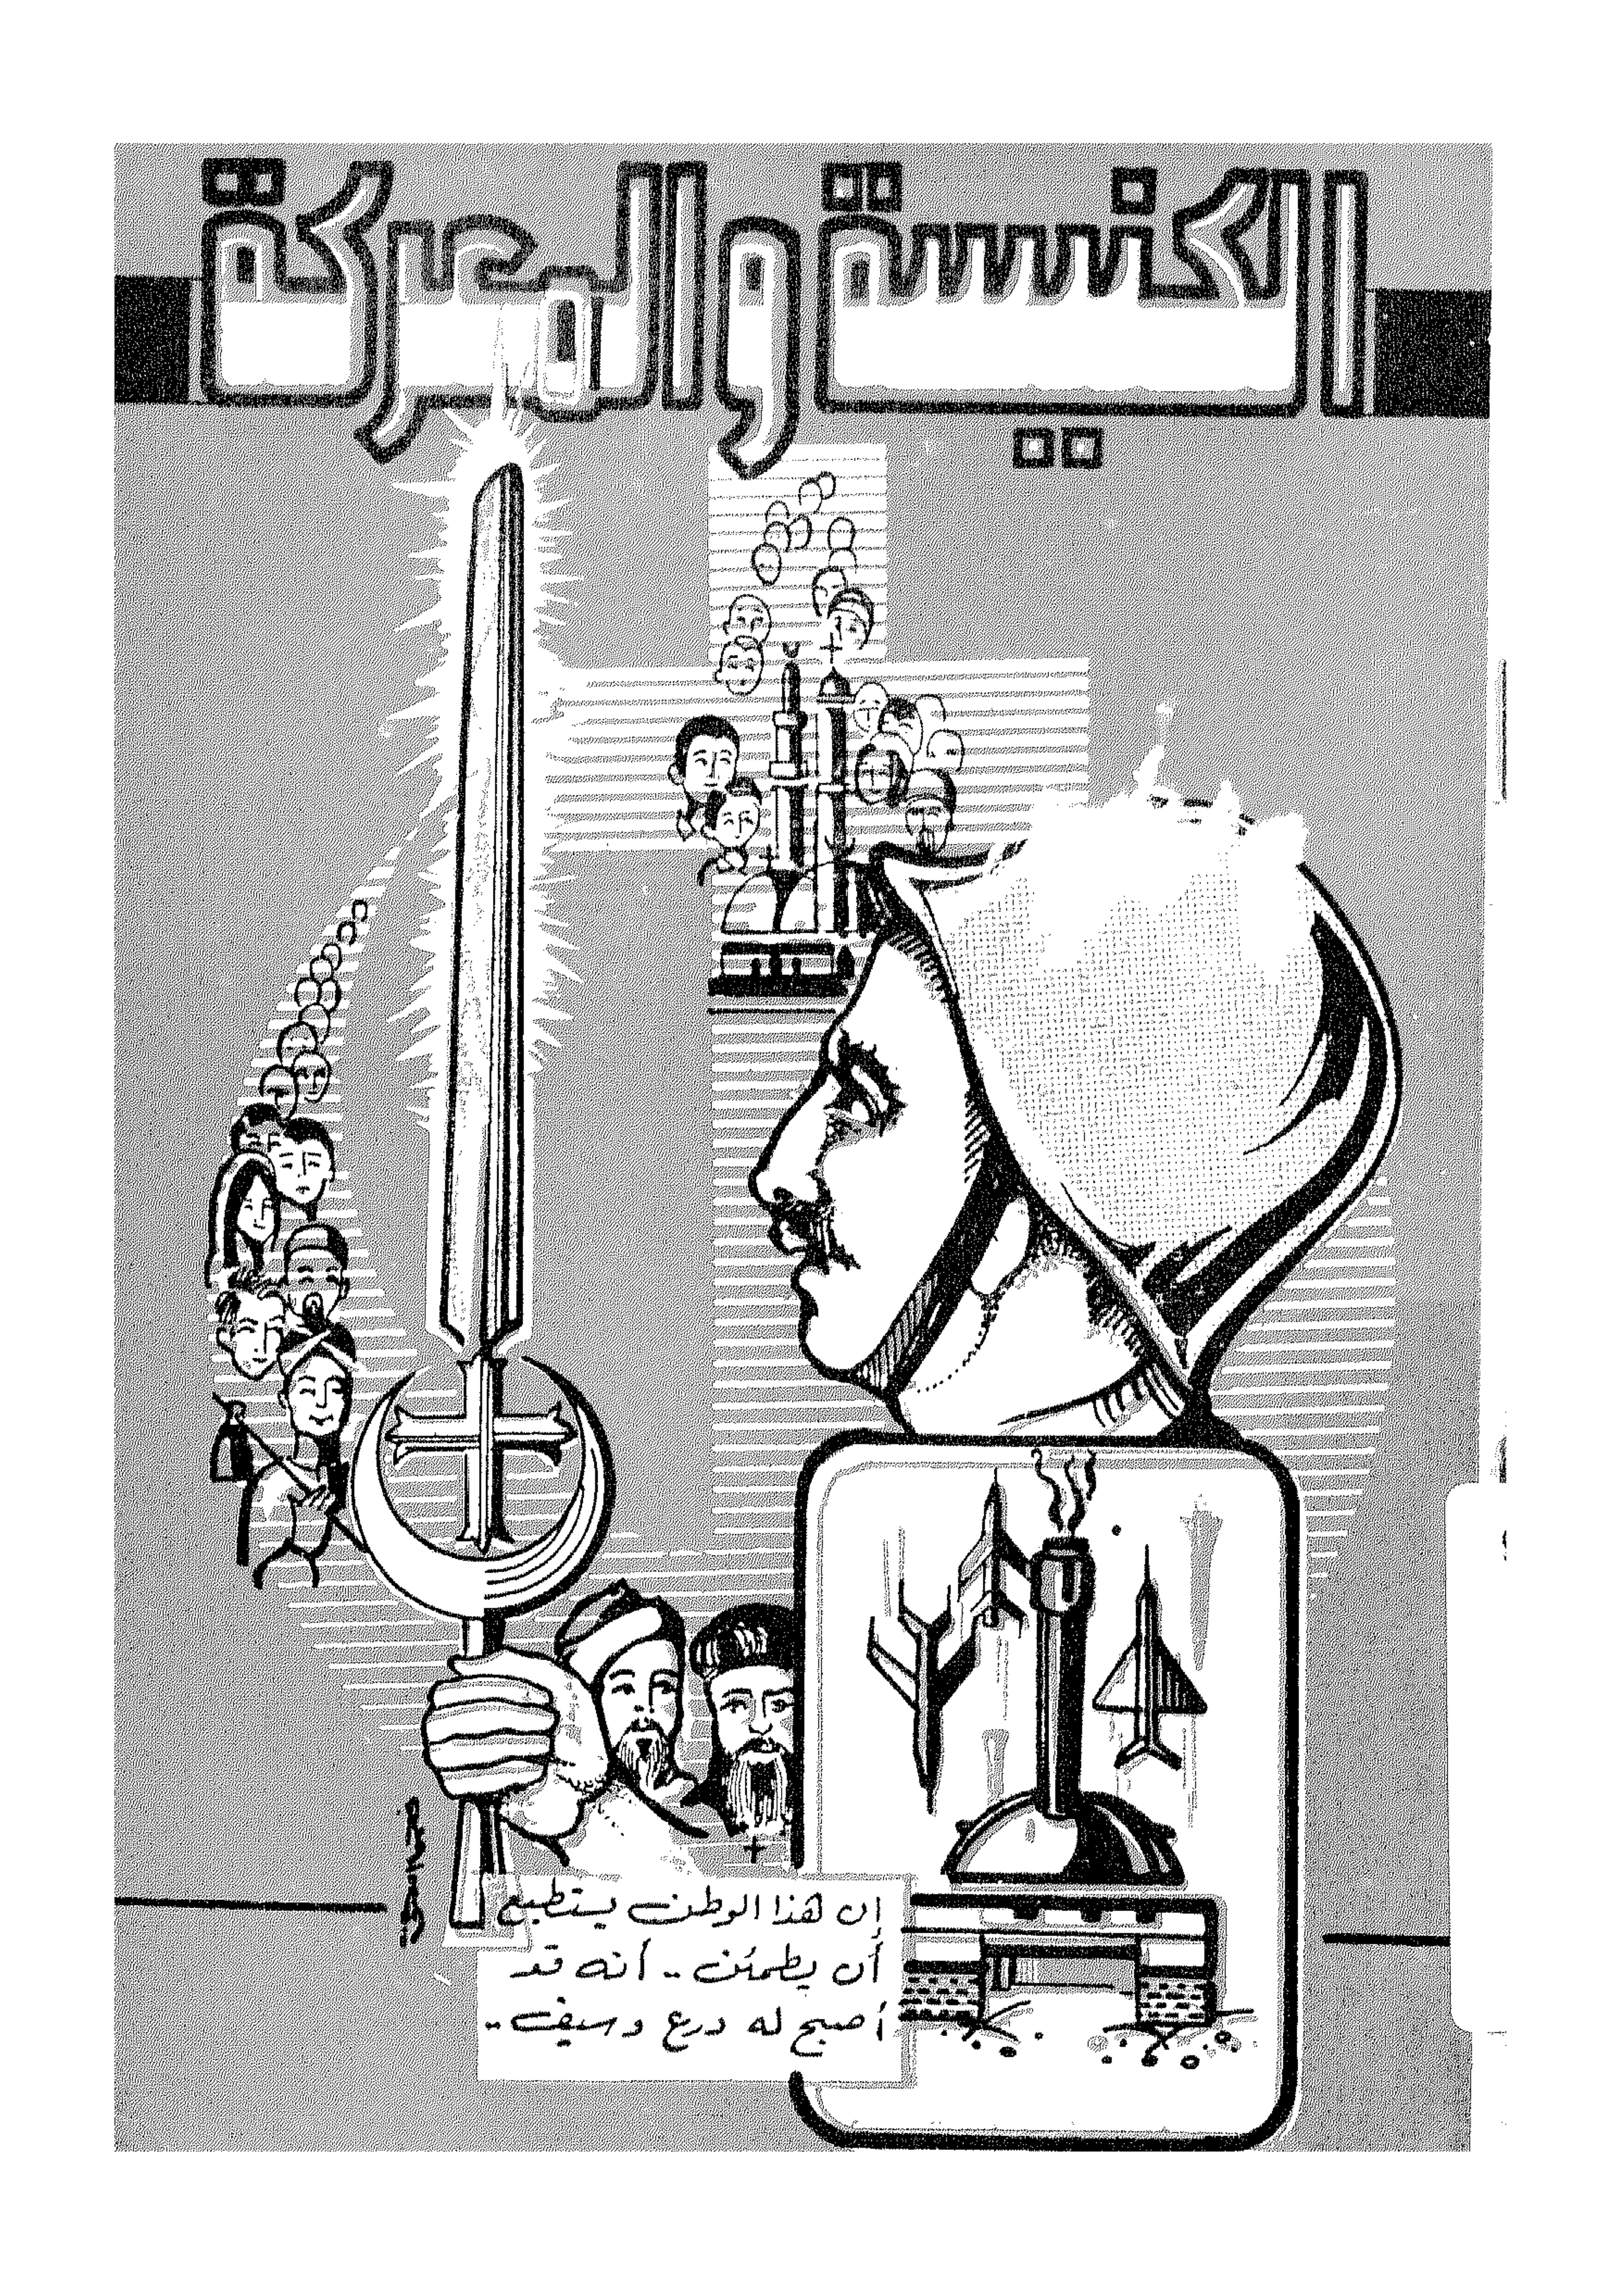 الكنيسة والمعركة
إن هذا الوطن يستطيع
أن يطمئن .. أنه قد
أصبح له درع وسيف ..